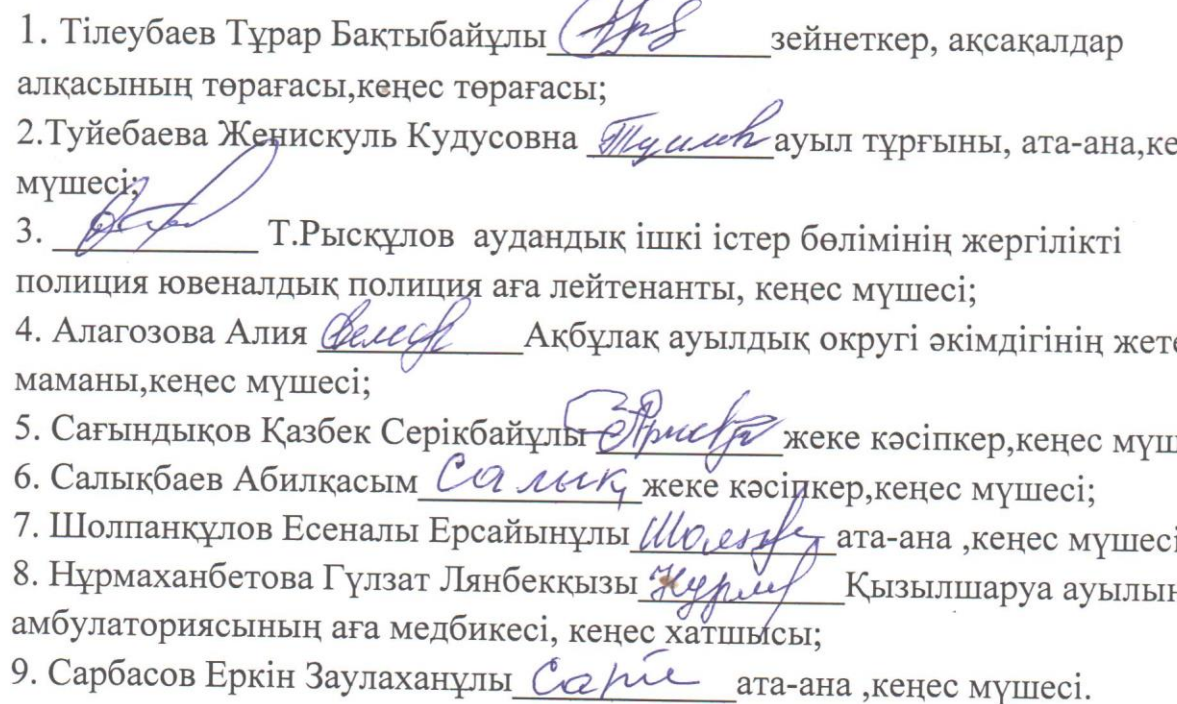 1. Тілеубаев Тұрар Бақтыбайұлы зейнеткер, ақсақалдар
алқасының төрағасы,кеңес төрағасы;
2.Туйебаева Женискуль Кудусовна ауыл тұрғыны, ата-ана,ке
мүшесі;
3. Т.Рысқұлов аудандық ішкі істер бөлімінің жергілікті
полиция ювеналдық полиция аға лейтенанты, кеңес мүшесі;
4. Алагозова Алия Ақбұлақ ауылдық округі әкімдігінің жете
маманы,кеңес мүшесі;
5. Сағындықов Қазбек Серікбайұлы жеке кәсіпкер,кеңес мүш
6. Салықбаев Абилқасым Салық жеке кәсіпкер,кеңес мүшесі;
7. Шолпанқұлов Есеналы Ерсайынұлы ата-ана ,кеңес мүшесі
8. Нұрмаханбетова Гүлзат Лянбекқызы Қызылшаруа ауылын
амбулаториясының аға медбикесі, кеңес хатшысы;
9. Сарбасов Еркін Заулаханұлы ата-ана ,кеңес мүшесі.